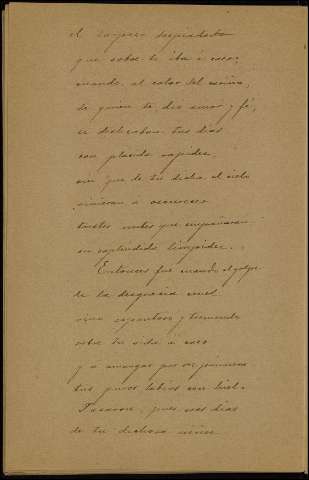 el zarpazo despiadado
que sobre ti iba á caer,
cuando, al calor del cariño,
de quien te dio amor y fé,
se deslizaban tus dias
con plácida rapidez,
sin que de tu dicha el cielo
vinieran á oscurecer
tristes nubes que empañaran
su esplendida limpidez.
Entonces fue cuando el golpe
de la desgracia cruel
vino espantoso y tremendo
sobre tu vida á caer
y á amargar por vez primera
tus puros labios con hiel.
Pasaron, pues, esos dias
de tu dichosa niñez